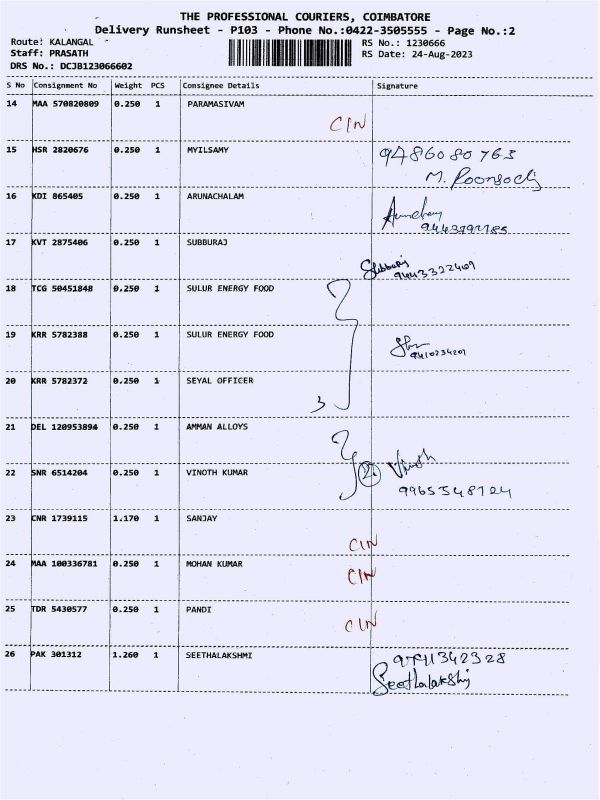 THE PROFESSIONAL COURIERS, COIMBATORE
Delivery Runsheet - P103 - Phone No.:0422-3505555 - Page No.:2
Route: KALANGAL RS No.: 1230666
Staff: PRASATH RS Date: 24-Aug-2023
DRS No.: DCJB123066602
S No Consignment No Weight PCS Consignee Details Signature
14 MAA 570820809 0.250 1 PARAMASIVAM
CIN
15 HSR 2820676 0.250 1 MYILSAMY 9486080763
M.
16 KDI 865405 0.250 1 ARUNACHALAM
17 KVT 2875406 0.250 1 SUBBURAJ
Subburaj
9443322409
18 TCG 50451848 0.250 1 SULUR ENERGY FOOD
19 KRR 5782388 0.250 1 SULUR ENERGY FOOD
20 KRR 5782372 0.250 1 SEYAL OFFICER
3
21 DEL 120953894 0.250 1 AMMAN ALLOYS
22 SNR 6514204 0.250 1 VINOTH KUMAR 2 Vinoth
9965548124
23 CNR 1739115 1.170 1 SANJAY
CIN
24 MAA 100336781 0.250 1 MOHAN KUMAR
CIN
25 TDR 5430577 0.250 1 PANDI
CIN
26 PAK 301312 1.260 1 SEETHALAKSHMI 9791342328
Seethalakshmi